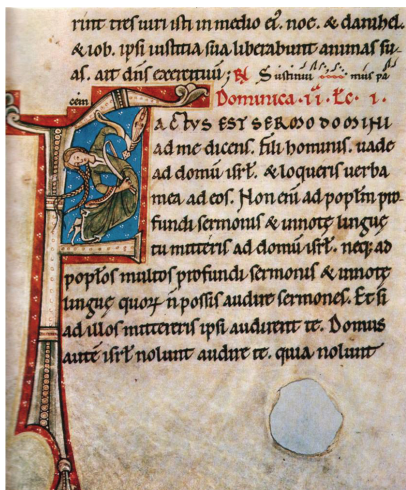 rint tres uiri isti in medio ei᷎. noe. & danihel.
& iob. ipsi iustitia sua liberabunt animas su-
as. ait dn̄s exercituū; R̷ Sustinui mus pa
cem Dominica. ii. Lc̄. i.
FACTUS EST SERMO DOMINI
ad me dicens. fili hominis. uade
ad domū isrl̄. & loqueris uerba
mea ad eos. Non eni᷎ ad popl̄m pro-
fundi sermonis & ignotę linguę
tu mitteris ad domū isrl̄. neq; ad
popl̄os multos profundi sermonis & ignotę
linguę quoꝝ n̄ possis audire sermones. Et si
ad illos mittereris ipsi audirent te. Domus
autē isrl̄ nolunt audire te. quia nolunt